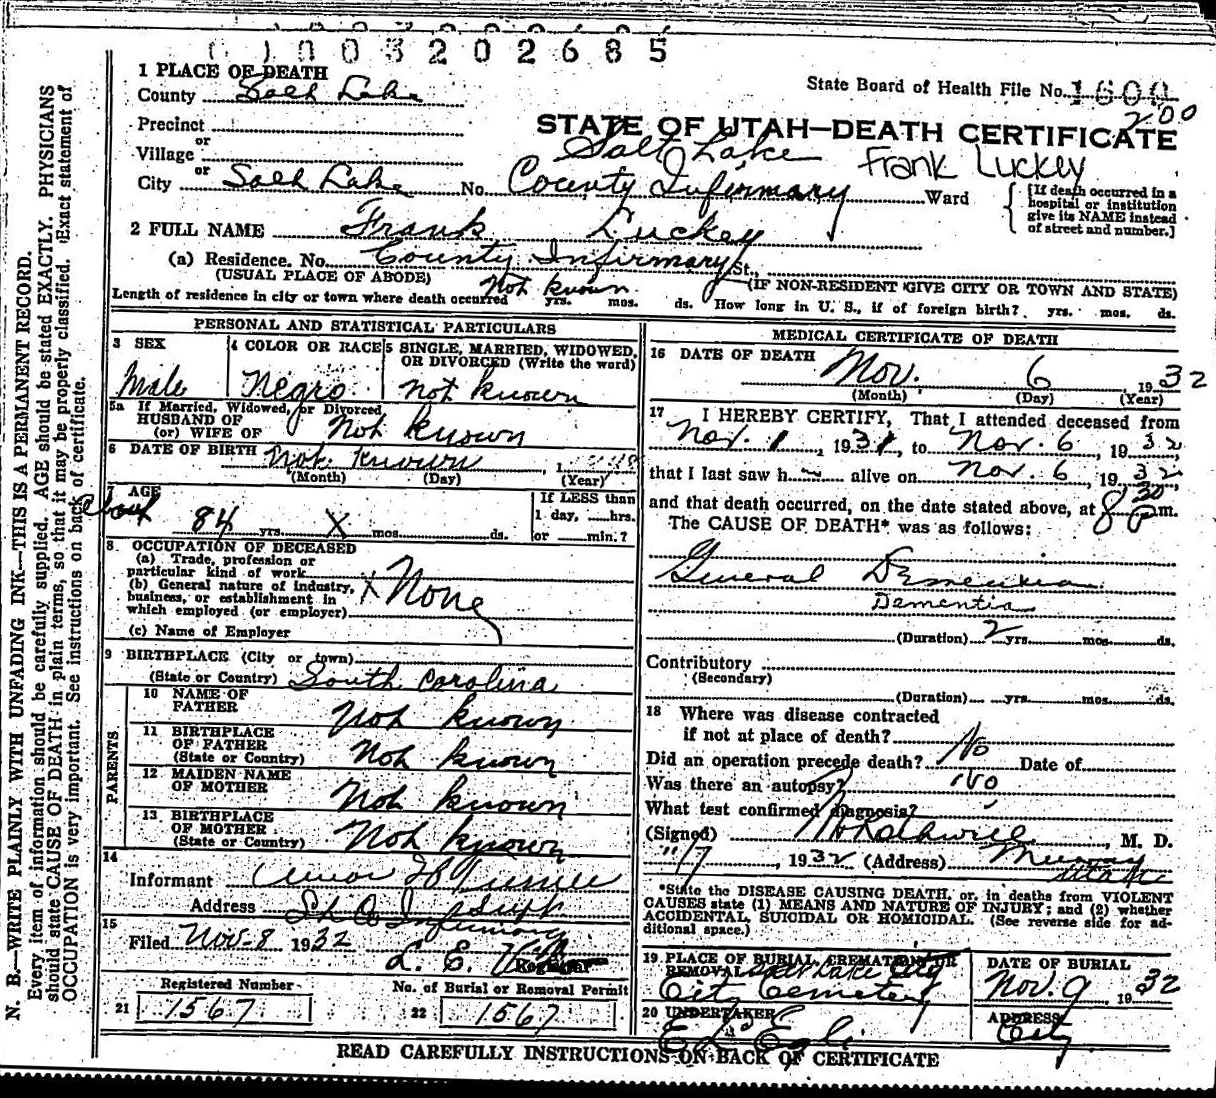 0 1 0 0 3 2 0 2 6 8 5
State Board of Health File No. 1600
200
1 PLACE OF DEATH
County Salt Lake
STATE OF UTAH—DEATH CERTIFICATE
Precinct
or
Village
Salt Lake Frank Luckey
or
City Salt Lake No. County Infirmary Ward
[If death occurred in a
hospital or institution
give its NAME instead
of street and number.]
2 FULL NAME Frank Luckey
(a) Residence. No. County Infirmary St.,
(USUAL PLACE OF ABODE) (IF NON-RESIDENT GIVE CITY OR TOWN AND STATE)
Length of residence in city or town where death occurred Not known yrs. mos. ds. How long in U. S., if of foreign birth? yrs. mos. ds.
PERSONAL AND STATISTICAL PARTICULARS
3 SEX
Male
4 COLOR OR RACE
Negro
5 SINGLE, MARRIED, WIDOWED,
OR DIVORCED (Write the word)
not known
5a If Married, Widowed, or Divorced
HUSBAND OF
(or) WIFE OF Not known
6 DATE OF BIRTH Not known, 1
(Month) (Day) (Year)
7 AGE
about 84 yrs. X mos. ds.
If LESS than
1 day, hrs.
or min.?
8. OCCUPATION OF DECEASED
(a) Trade, profession or
particular kind of work
(b) General nature of Industry,
business, or establishment in
which employed (or employer)
X None
(c) Name of Employer
9 BIRTHPLACE (City or town)
(State or Country) South Carolina
PARENTS
10 NAME OF
FATHER Not known
11 BIRTHPLACE
OF FATHER
(State or Country) Not known
12 MAIDEN NAME
OF MOTHER Not known
13 BIRTHPLACE
OF MOTHER
(State or Country) Not known
14
Informant
Address S L Co Infirmary Supt.
15
Filed Nov-8 1932 L. E.
Registrar
Registered Number
21 1567
No. of Burial or Removal Permit
22 1567
MEDICAL CERTIFICATE OF DEATH
16 DATE OF DEATH Nov. 6, 1932
(Month) (Day) (Year)
17 I HEREBY CERTIFY, That I attended deceased from
Nov. 1, 1931, to Nov. 6, 1932,
that I last saw h alive on Nov. 6, 1932,
and that death occurred, on the date stated above, at 8 30 P m.
The CAUSE OF DEATH* was as follows:
General Dementia
Dementia
(Duration) 2 yrs. mos. ds.
Contributory
(Secondary)
(Duration) yrs. mos. ds.
18 Where was disease contracted
if not at place of death?
Did an operation precede death? No Date of
Was there an autopsy? No
What test confirmed diagnosis?
(Signed) , M. D.
11/7, 1932 (Address) Murray
Utah
*State the DISEASE CAUSING DEATH, or, in deaths from VIOLENT
CAUSES state (1) MEANS AND NATURE OF INJURY; and (2) whether
ACCIDENTAL, SUICIDAL OR HOMICIDAL. (See reverse side for ad-
ditional space.)
19 PLACE OF BURIAL, CREMATION OR
REMOVAL Salt Lake City
City Cemetery
DATE OF BURIAL
Nov. 9, 1932
20 UNDERTAKER
E L Egli
ADDRESS
City
READ CAREFULLY INSTRUCTIONS ON BACK OF CERTIFICATE
N. B.—WRITE PLAINLY WITH UNFADING INK—THIS IS A PERMANENT RECORD.
Every item of information should be carefully supplied. AGE should be stated EXACTLY. PHYSICIANS
should state CAUSE OF DEATH in plain terms, so that it may be properly classified. Exact statement of
OCCUPATION is very important. See instructions on back of certificate.